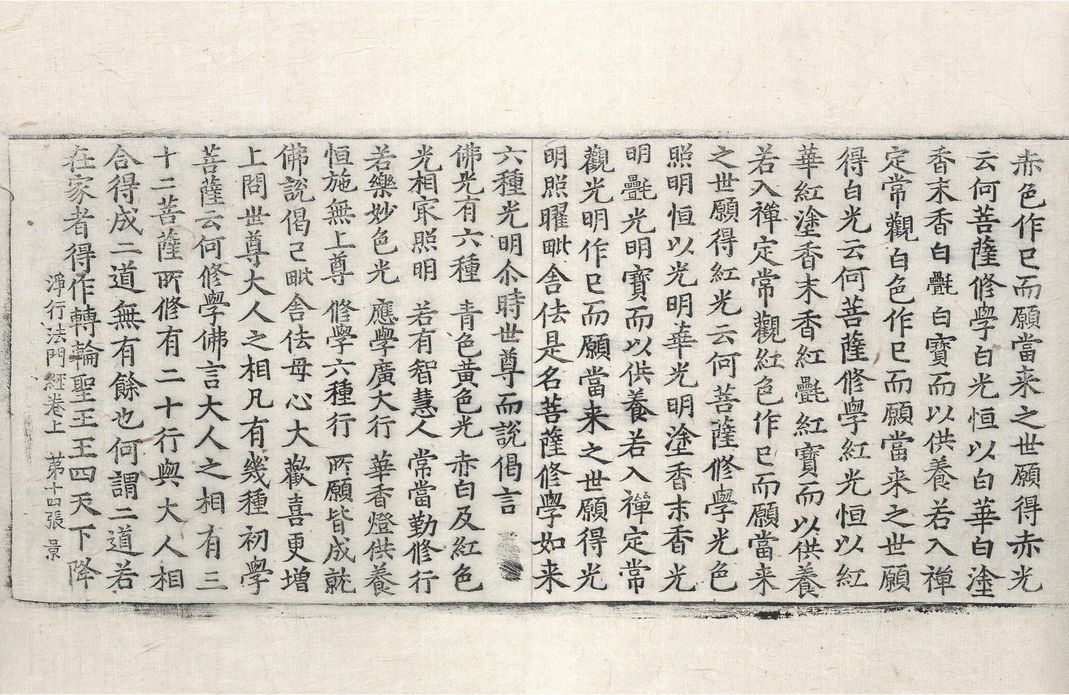 赤色作已而願當来之世願得赤光
云何菩薩修學白光恒以白華白塗
香末香白㲲白寳而以供養若入禪
定常觀白色作已而願當来之世願
得白光云何菩薩修學紅光恒以紅
華紅塗香末香紅㲲紅寳而以供養
若入禪定常觀紅色作已而願當来
之世願得紅光云何菩薩修學光色
照明恒以光明華光明塗香末香光
明㲲光明寳而以供養若入禪定常
觀光明作已而願當来之世願得光
明照曜毗舍佉是名菩薩修學如来
六種光明尒時世尊而說偈言
佛光有六種 青色黃色光 赤白及紅色
光相㝡照明 若有智慧人 常當勤修行
若樂妙色光 應學廣大行 華香燈供養
恒施無上尊 修學六種行 所願皆成就
佛說偈已毗舍佉母心大歡喜更增
上問世尊大人之相凡有幾種初學
菩薩云何修學佛言大人之相有三
十二菩薩所修有二十行與大人相
合得成二道無有餘也何謂二道若
在家者得作轉輪聖王王四天下降
淨行法門經卷上 第十四張 景